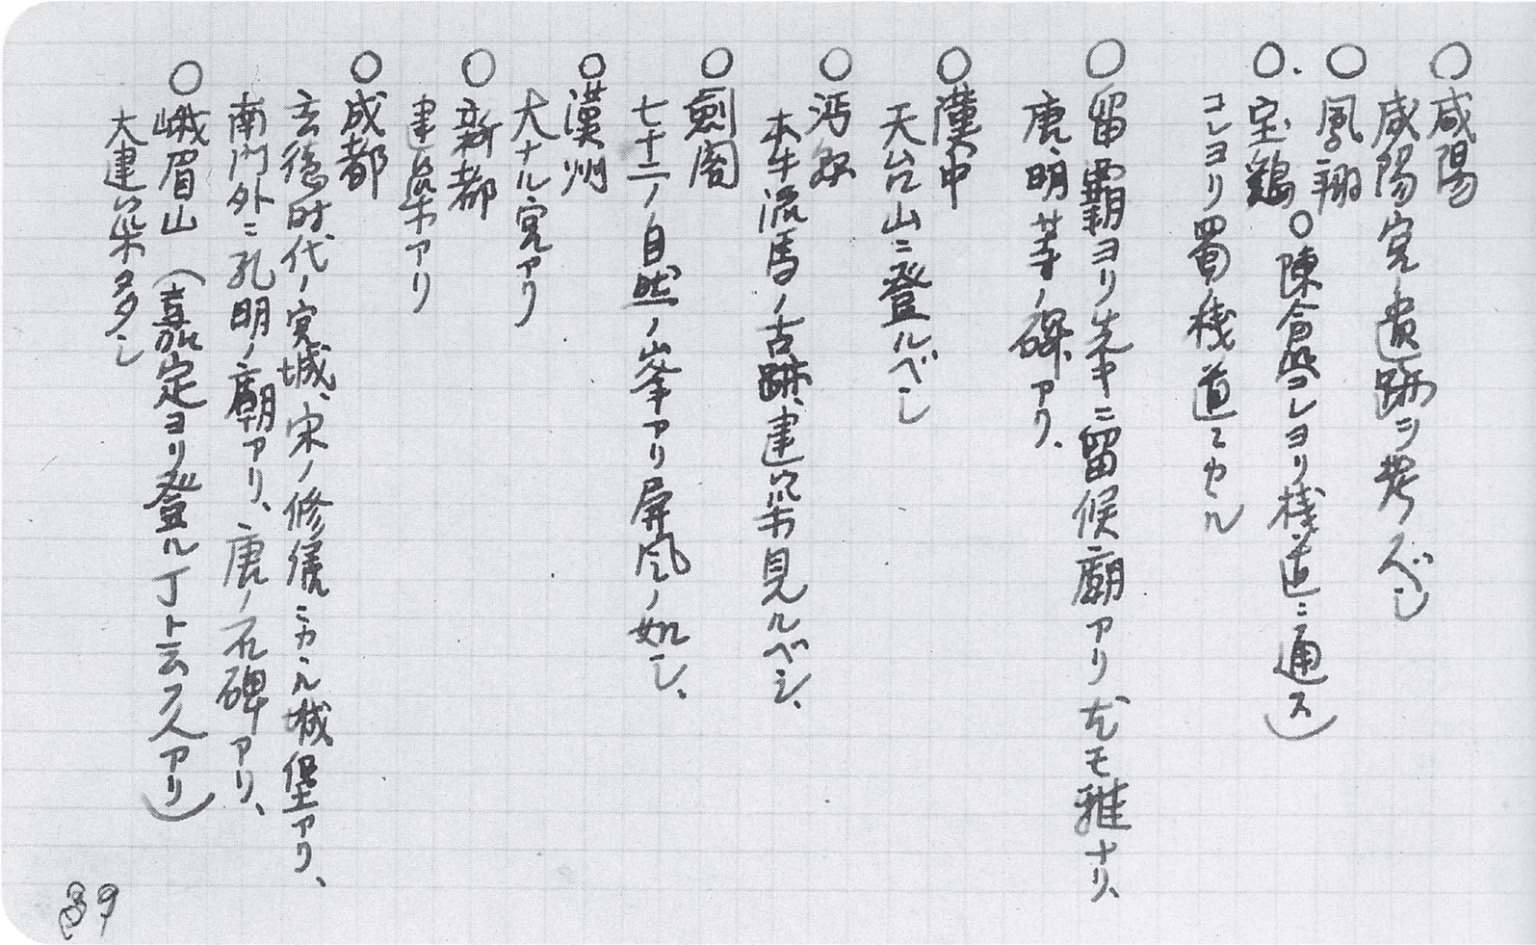 ○咸陽
咸陽宮ノ遺跡ヲ考フベシ
○鳳翔
○.宝鶏○陳倉 コレヨリ棧道ニ通ス)
コレヨリ蜀ノ棧道ニカヽル
○留覇ヨリ先キニ留候廟アリ 尤モ雅ナリ、
唐、明 等ノ碑アリ、
○漢中
天台山ニ登ルベシ
○沔県
木牛流馬ノ古跡、建築ヲ見ルベシ、
○剣閣
七十二ノ自然ノ峯アリ屏風ノ如シ、
○漢州
大ナル宮アリ
○新都
建築アリ
○成都
玄徳時代ノ宮城、宋ノ修復ニカヽル城堡アリ、
南門外ニ孔明ノ廟アリ、唐ノ石碑アリ、
○峨眉山(嘉定ヨリ登ル丁ト云フ人アリ)
大建築多シ
39